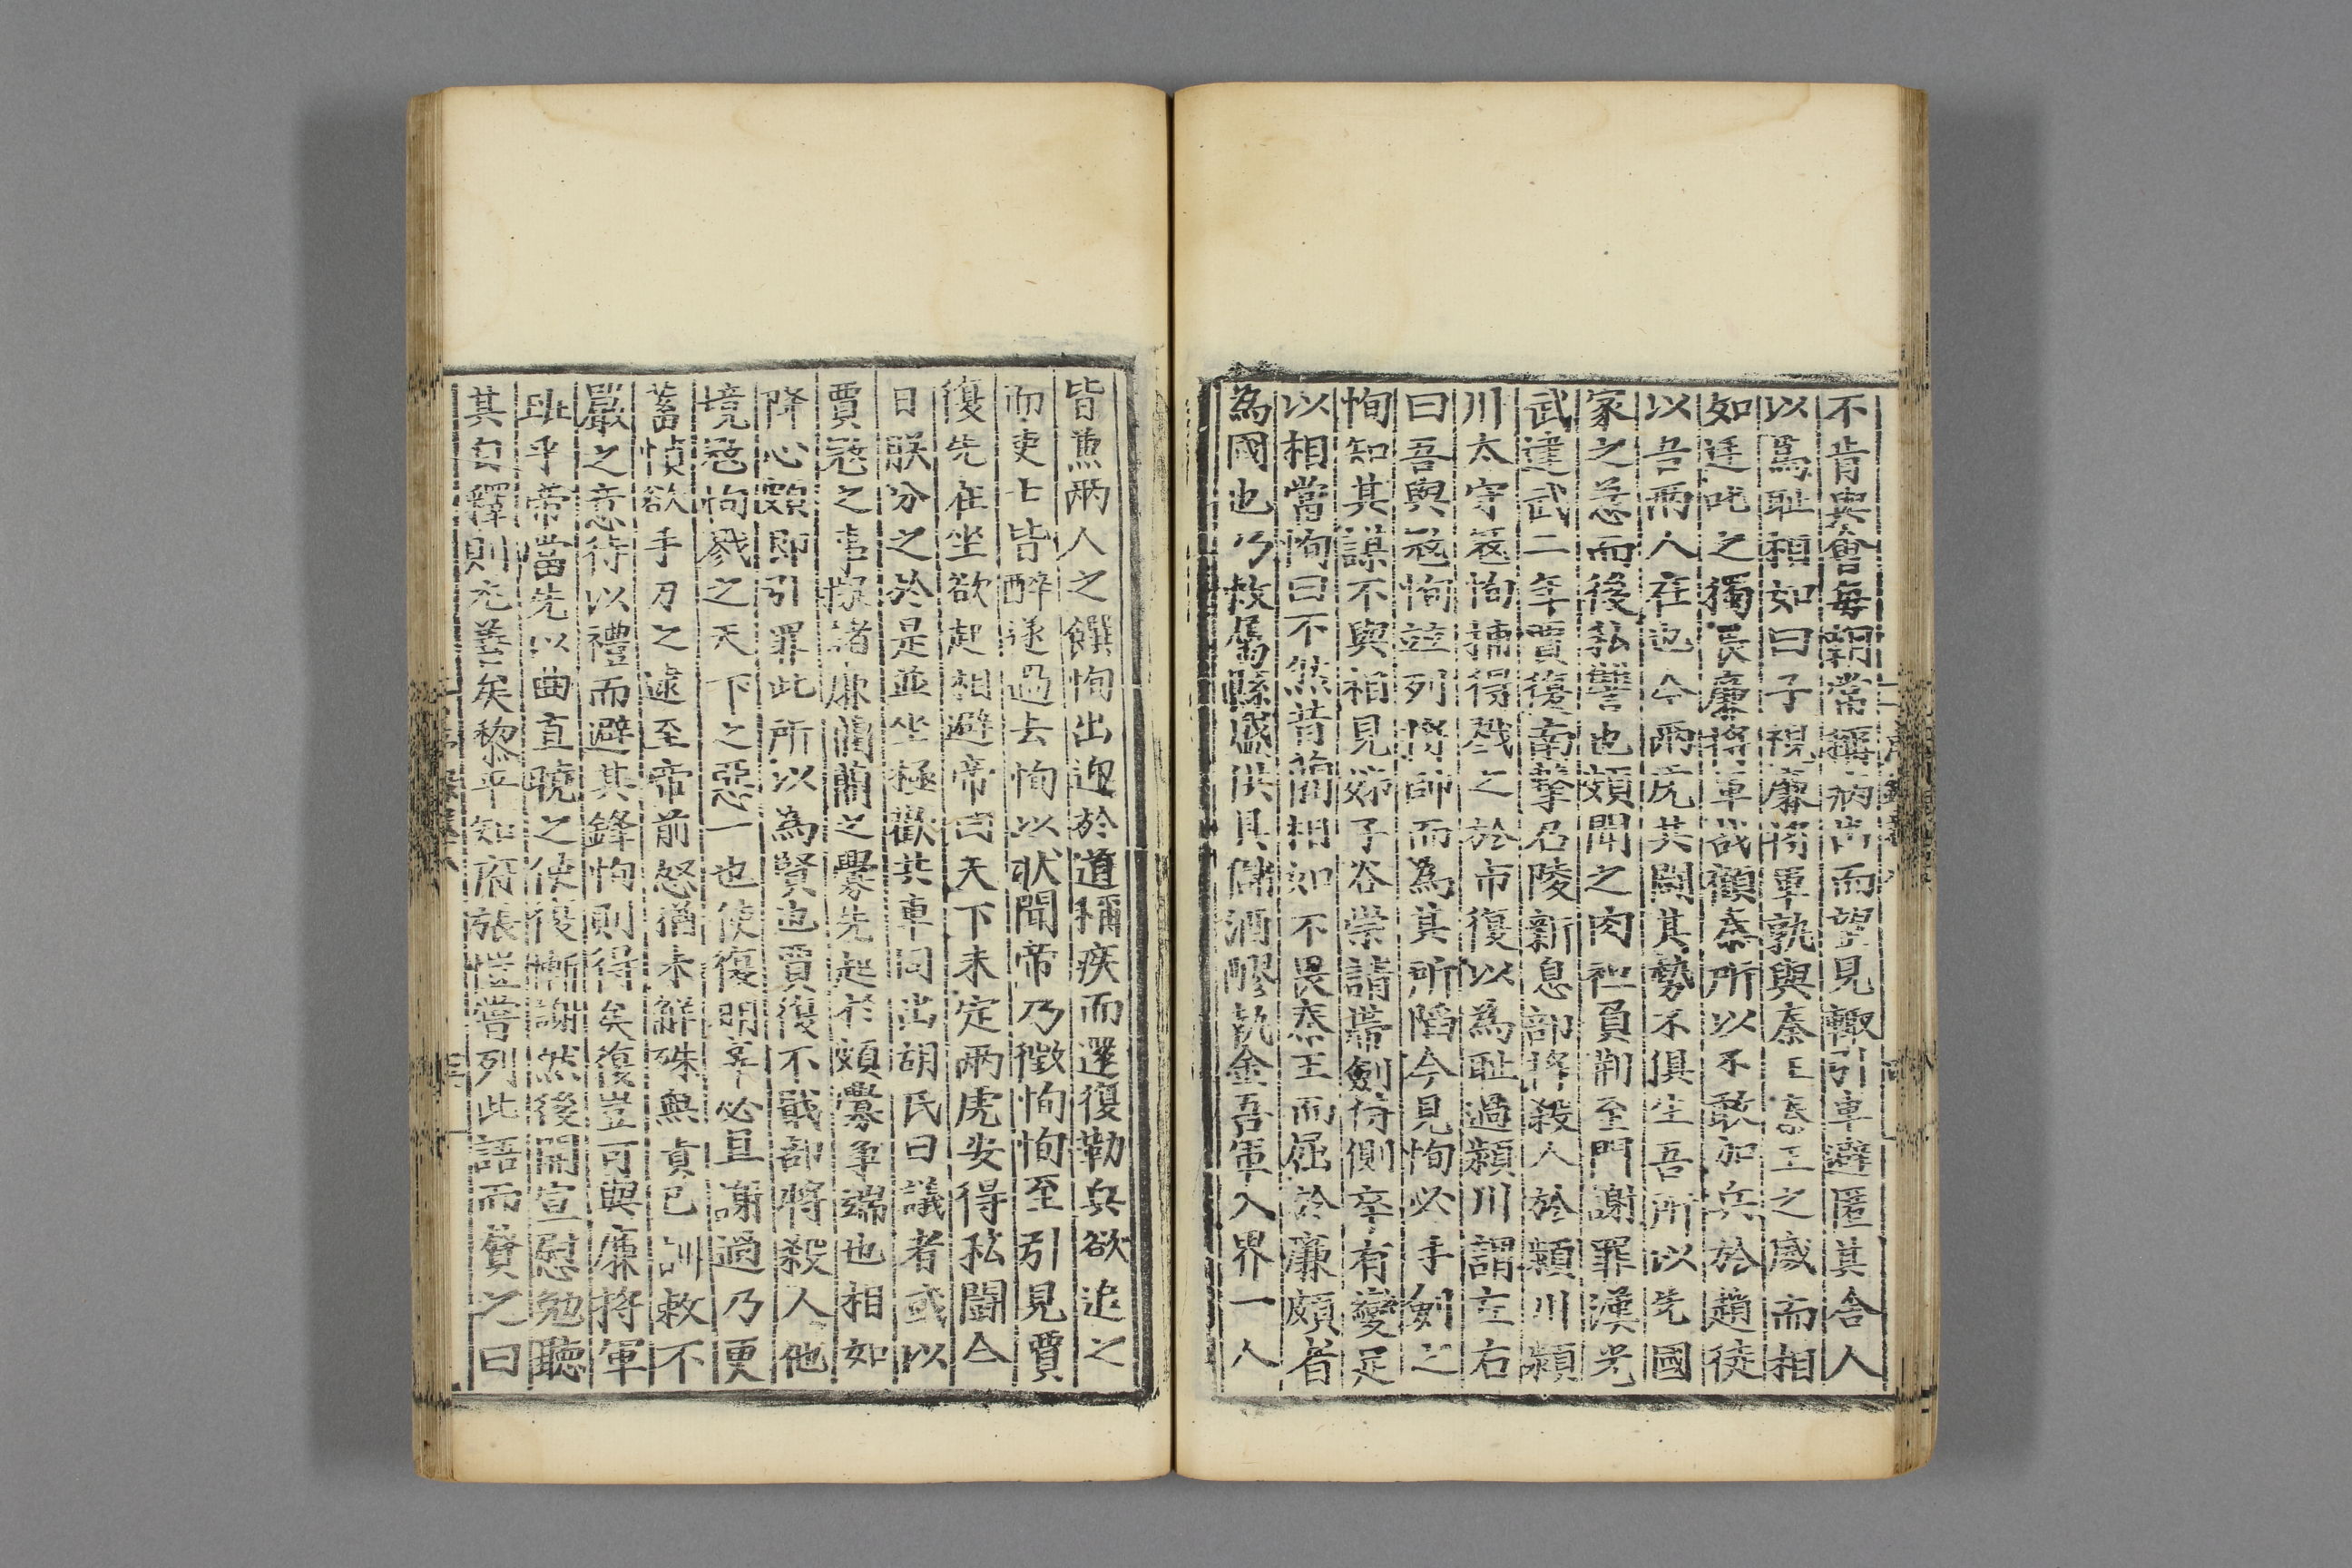 不肯與會每朝常稱病出而望見輙引車避匿其舎人
以爲耻相如曰子視廉將軍孰與秦王秦王之威而相
如廷叱之獨畏廉將軍㦲顧秦所以不敢加兵於趙徒
以吾兩人在也今兩虎共鬭其勢不俱生吾所以先國
家之急而後私讐也頗聞之肉袒負荆至門謝罪漢光
武建武二年賈復南擊召陵新息部將殺人於潁川潁
川太守宼恂捕得戮之於市復以為耻過潁川謂左右
曰吾與宼恂並列將帥而為其所陷今見恂必手劍之
恂知其謀不與相見姊子谷崇請帶劍侍側卒有變足
以相當恂曰不然昔藺相如不畏秦王而屈於廉頗者
為國也乃敕屬縣盛供具儲酒醪執金吾軍入界一人
皆兼兩人之饌恂出迎於道稱疾而還復勒兵欲追之
而吏士皆醉遂過去恂以狀聞帝乃徵恂恂至引見賈
復先在坐欲起相避帝曰天下未定兩虎安得私鬬今
日朕分之於是並坐極歡共車同出胡氏曰議者或以
賈宼之事擬諸廉藺藺之釁先起於頗釁爭端也相如
降心頗即引罪此所以為賢也賈復不戢部將殺人他
境宼恂戮之天下之惡一也使復明率必且謝過乃更
蓄憤欲手刃之逮至帝前怒猶未解殊無貞已訓敕不
嚴之意待以禮而避其鋒恂則得矣復豈可與廉將軍
班乎帝當先以曲直曉之使復慚謝然後開宣慰勉聽
其自釋則充善矣黎平知府張愷嘗列此語而贊之曰